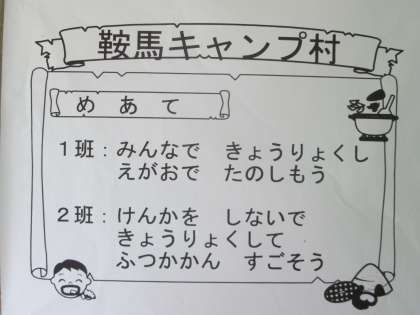 鞍馬キャンプ村
めあて
1班：みんなで　きょうりょくし
えがおで　たのしもう
2班：けんかを　しないで
きょうりょくして
ふつかかん　すごそう